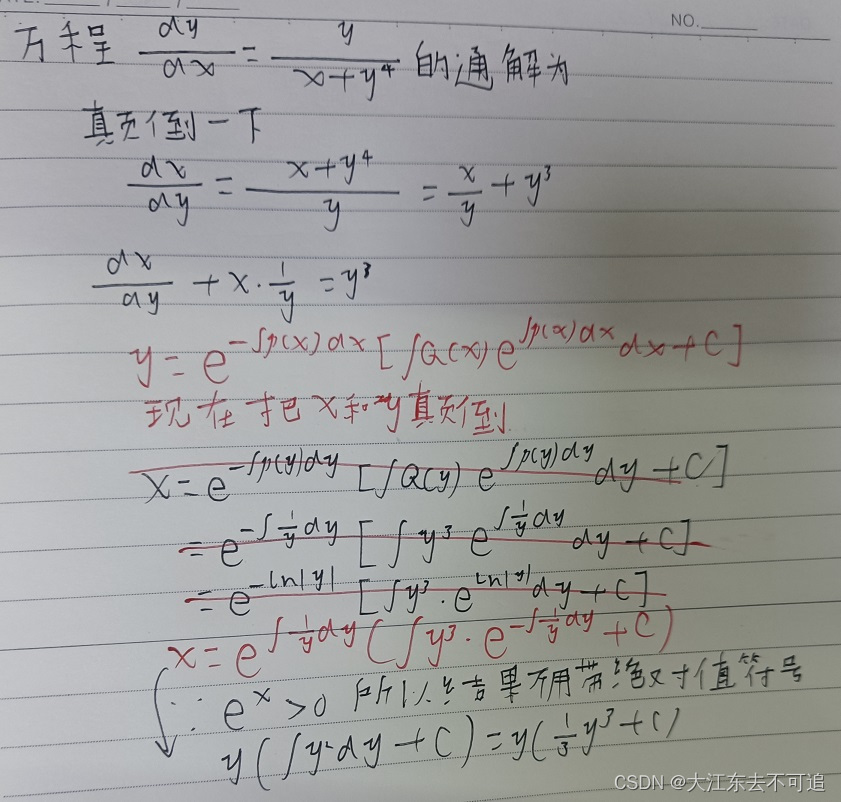 NO.
方程 dy/dx = y/(x+y⁴) 的通解为
颠倒一下
dx/dy = (x+y⁴)/y = x/y + y³
dx/dy + x·1/y = y³
y = e^(-∫p(x)dx) [∫Q(x) e^(∫p(x)dx) dx + C]
现在把x和y颠倒
x = e^(-∫p(y)dy) [∫Q(y) e^(∫p(y)dy) dy + C]
= e^(-∫1/y dy) [∫y³ e^(∫1/y dy) dy + C]
= e^(-ln|y|) [∫y³·e^(ln|y|) dy + C]
x = e^(∫1/y dy) (∫y³·e^(-∫1/y dy) + C)
∵ eˣ > 0 所以结果不用带绝对值符号
y(∫y²dy + C) = y(1/3 y³ + C)
CSDN @大江东去不可追